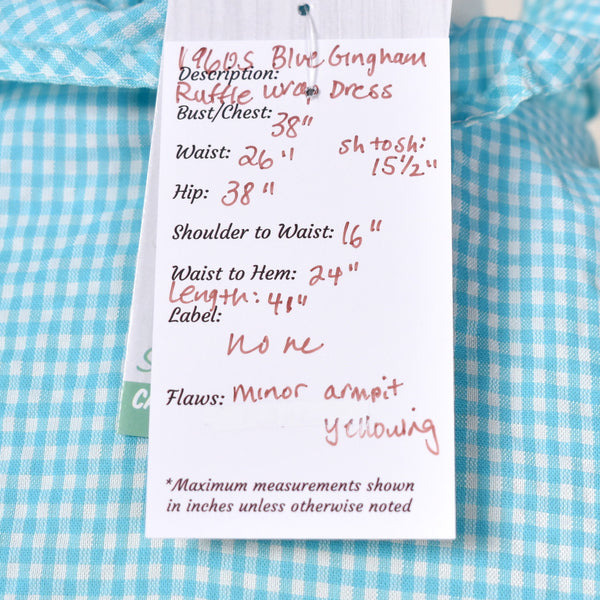 1960s Blue Gingham
Description:
Ruffle wrap Dress
Bust/Chest: 38"
Waist: 26" sh to sh: 15 1/2"
Hip: 38"
Shoulder to Waist: 16"
Waist to Hem: 24"
Length: 41"
Label:
none
Flaws: minor armpit
yellowing
*Maximum measurements shown
in inches unless otherwise noted